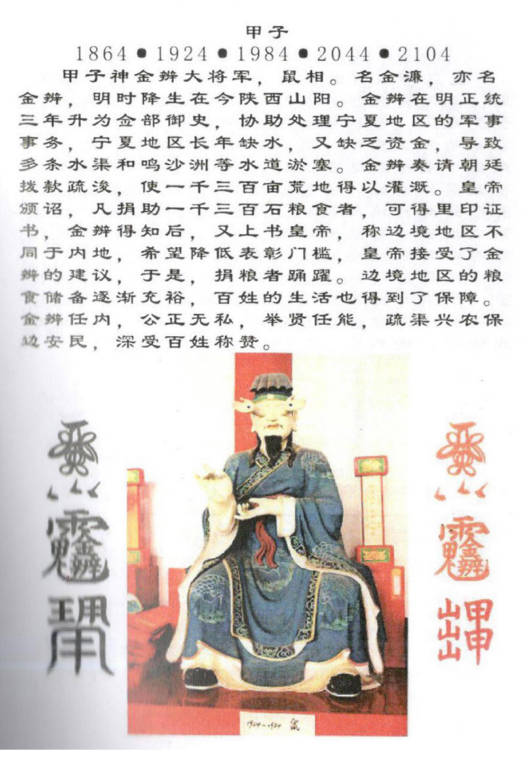 甲子
1864●1924●1984●2044●2104
甲子神金辨大将军，鼠相。名金濂，亦名
金辨，明时降生在今陕西山阳。金辨在明正统
三年升为佥部御史，协助处理宁夏地区的军事
事务，宁夏地区长年缺水，又缺乏资金，导致
多条水渠和鸣沙洲等水道淤塞。金辨奏请朝廷
拨款疏浚，使一千三百亩荒地得以灌溉。皇帝
颁诏，凡捐助一千三百石粮食者，可得里印证
书，金辨得知后，又上书皇帝，称边境地区不
同于内地，希望降低表彰门槛，皇帝接受了金
辨的建议，于是，捐粮者踊跃。边境地区的粮
食储备逐渐充裕，百姓的生活也得到了保障。
金辨任内，公正无私，举贤任能，疏渠兴农保
边安民，深受百姓称赞。
鼠